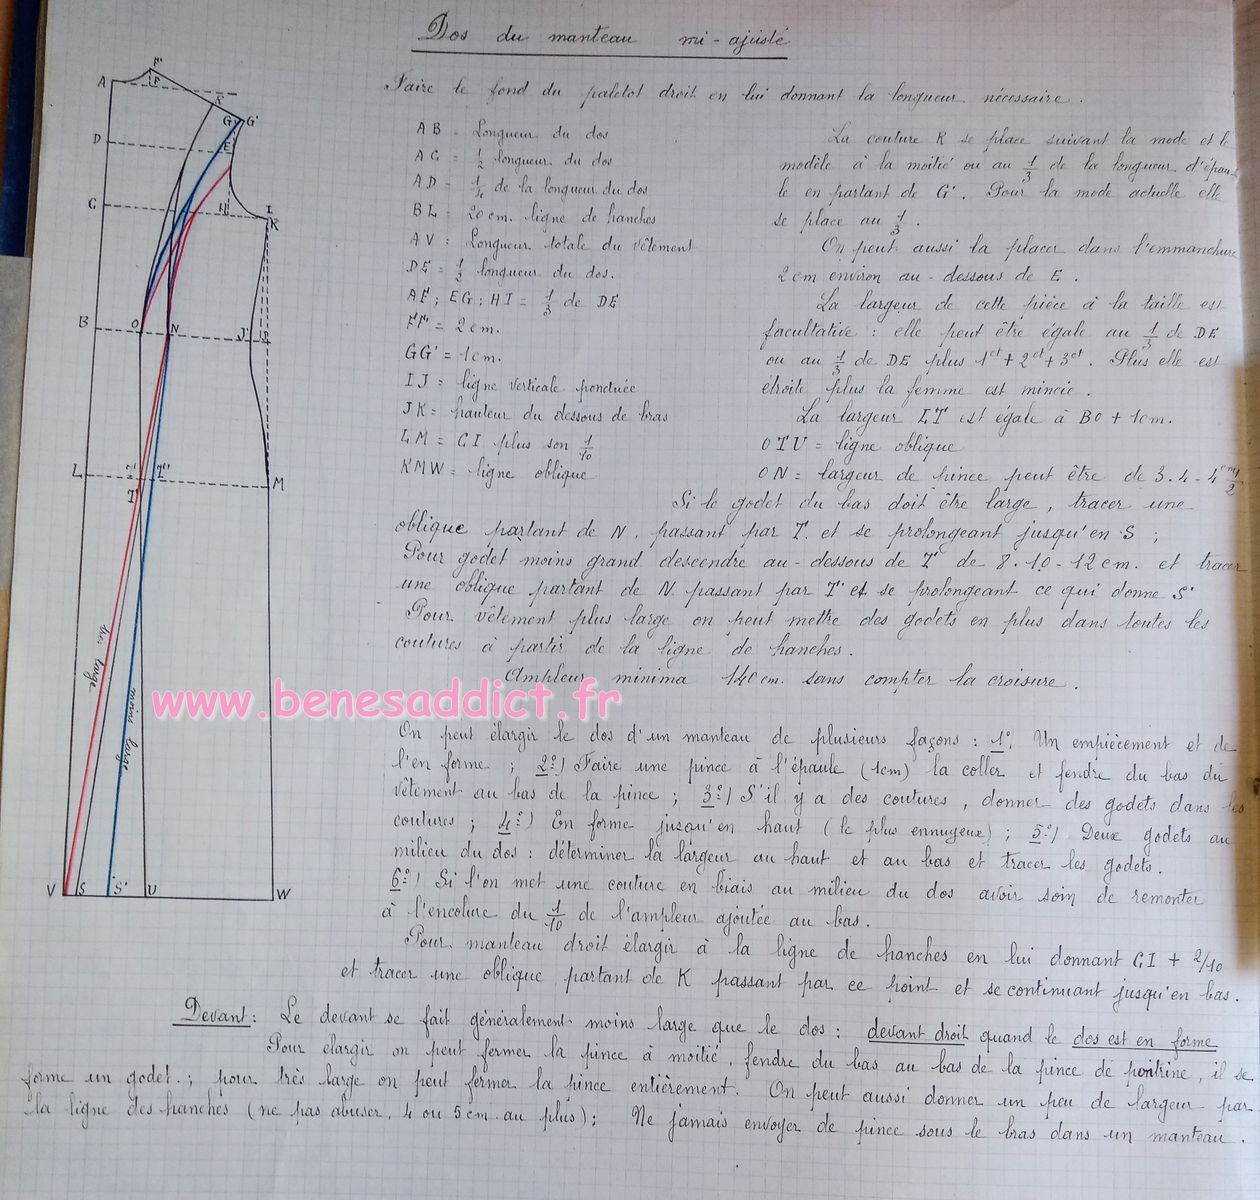 Dos du manteau mi-ajusté
Faire le fond du paletot droit en lui donnant la longueur nécessaire.
AB = Longueur du dos
AC = 1/2 longueur du dos
AD = 1/4 de la longueur du dos
BL = 20 cm. ligne de hanches
AV = Longueur totale du vêtement
DE = 1/2 longueur du dos.
AF ; EG ; HI = 1/3 de DE
FF' = 2 cm.
GG' = 1 cm.
IJ = ligne verticale ponctuée
JK = hauteur du dessous de bras
LM = CI plus son 1/10
KMW = ligne oblique
La couture K se place suivant la mode et le
modèle à la moitié ou au 1/3 de la longueur d'épau-
le en partant de G'. Pour la mode actuelle elle
se place au 1/3.
On peut aussi la placer dans l'emmanchure
2 cm environ au-dessous de E.
La largeur de cette pièce à la taille est
facultative : elle peut être égale au 1/3 de DE
ou au 1/3 de DE plus 1ct + 2ct + 3ct. Plus elle est
étroite plus la femme est mincie.
La largeur LT est égale à BO + 1 cm.
OTU = ligne oblique
ON = largeur de pince peut être de 3. 4 - 4 cm 1/2
Si le godet du bas doit être large, tracer une
oblique partant de N, passant par T et se prolongeant jusqu'en S ;
Pour godet moins grand descendre au-dessous de T de 8. 10 - 12 cm. et tracer
une oblique partant de N passant par T' et se prolongeant ce qui donne S'
Pour vêtement plus large on peut mettre des godets en plus dans toutes les
coutures à partir de la ligne de hanches.
Ampleur minima 140 cm. sans compter la croisure.
On peut élargir le dos d'un manteau de plusieurs façons : 1°) Un empiècement et de
l'en forme ; 2°) Faire une pince à l'épaule (1cm) la coller et fendre du bas du
vêtement au bas de la pince ; 3°) S'il y a des coutures, donner des godets dans les
coutures ; 4°) En forme jusqu'en haut (le plus ennuyeux) ; 5°) Deux godets au
milieu du dos : déterminer la largeur au haut et au bas et tracer les godets.
6°) Si l'on met une couture en biais au milieu du dos avoir soin de remonter
à l'encolure du 1/10 de l'ampleur ajoutée au bas.
Pour manteau droit élargir à la ligne de hanches en lui donnant CI + 2/10
et tracer une oblique partant de K passant par ce point et se continuant jusqu'en bas.
Devant : Le devant se fait généralement moins large que le dos : devant droit quand le dos est en forme
Pour élargir on peut fermer la pince à moitié, fendre du bas au bas de la pince de poitrine, il se
forme un godet. ; pour très large on peut fermer la pince entièrement. On peut aussi donner un peu de largeur par
la ligne des hanches (ne pas abuser, 4 ou 5 cm au plus) ; Ne jamais envoyer de pince sous le bras dans un manteau.
A
F'
F
K
G
G'
D
E
C
H
I
K
B
O
N
J
L
T
T'
M
très large
moins large
V
S
S'
U
W
www.benesaddict.fr